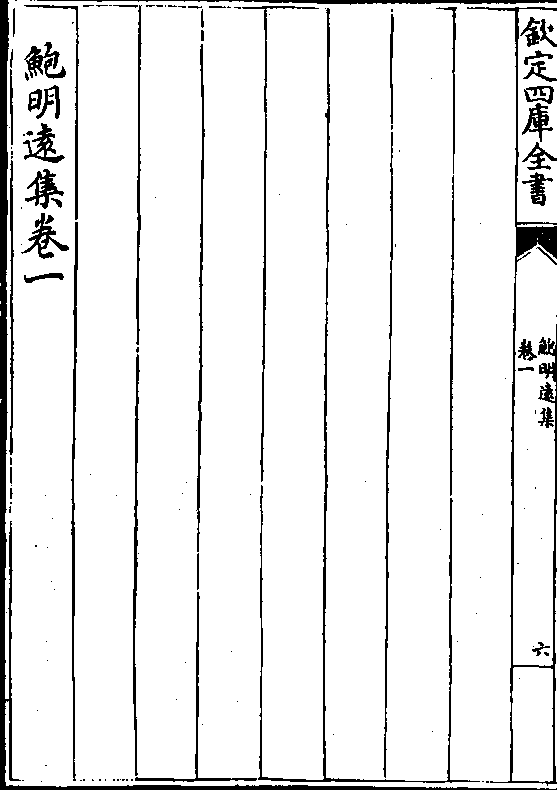 欽定四庫全書
鮑明遠集
卷一
六
鮑明遠集卷一